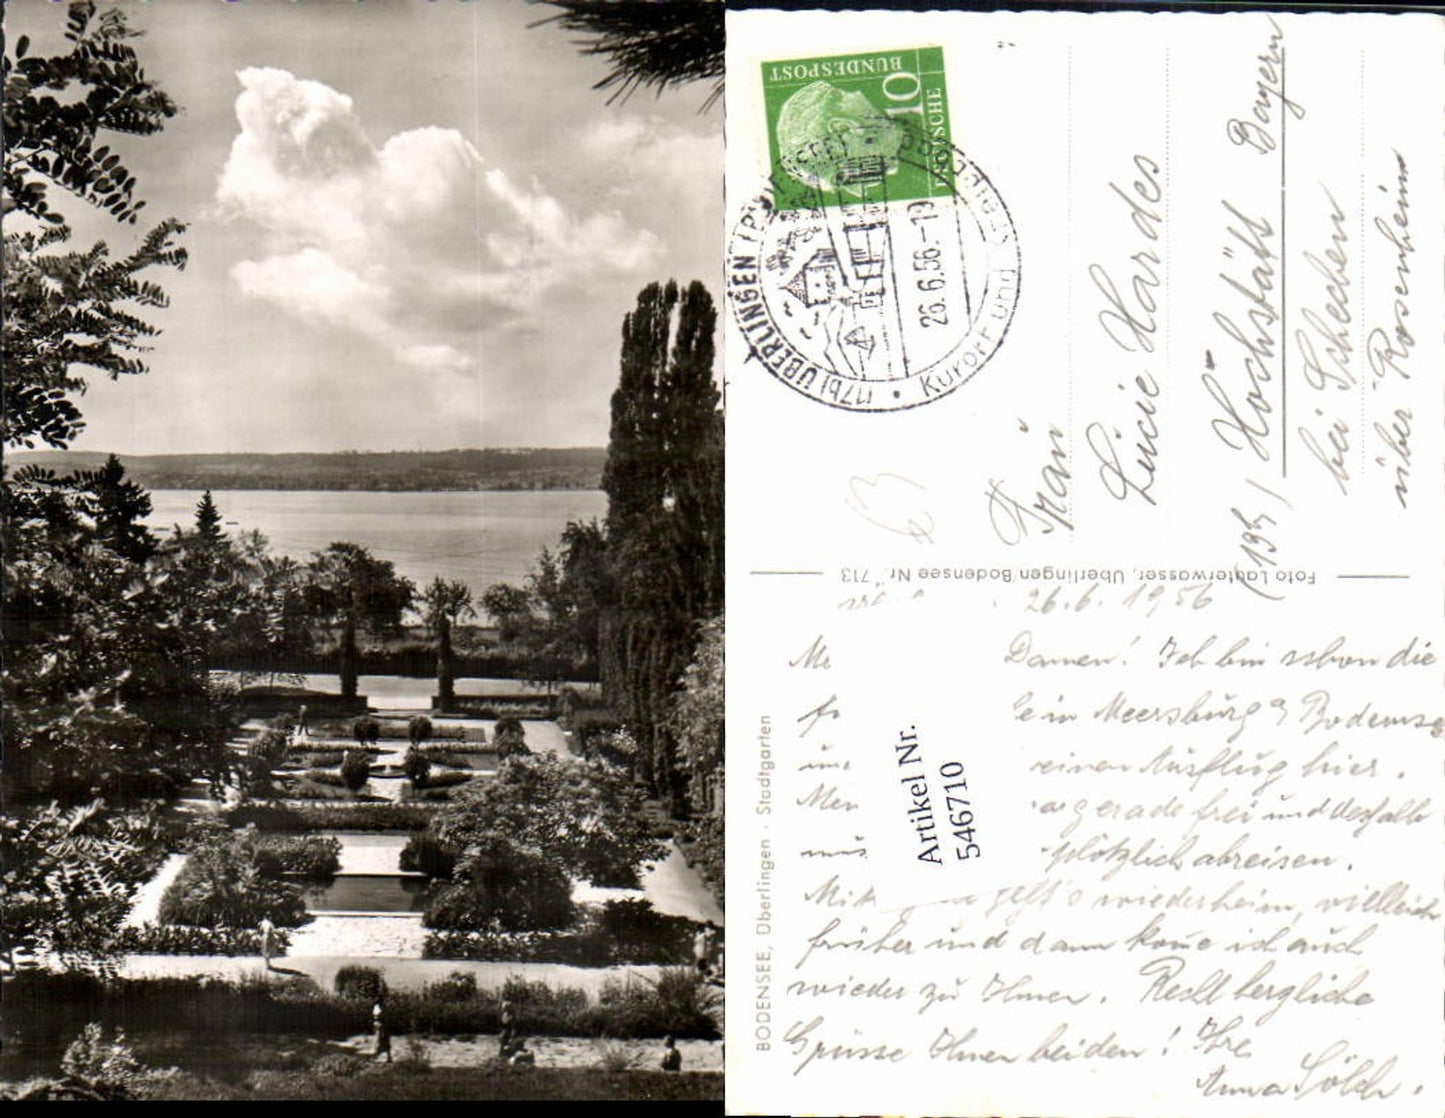 DEUTSCHE
BUNDESPOST
10
(17b) ÜBERLINGEN (BODENSEE)
26.6.56.-19
Kurort und
Frau
Lucie Hardes
(13b) Höchstätt Bayern
bei Schechen
über Rosenheim
Foto Lauterwasser, Überlingen Bodensee Nr. 713
BODENSEE, Überlingen · Stadtgarten
Artikel Nr.
546710
26.6.1956
Damen! Ich bin schon die
in Meersburg a Bodensee
einen Ausflug hier.
gerade frei und deshalb
plötzlich abreisen.
geht's wieder heim, vielleicht
früher und dann komme ich auch
wieder zu Ihnen. Recht herzliche
Grüsse Ihnen beiden! Ihre
Anna Sölch.